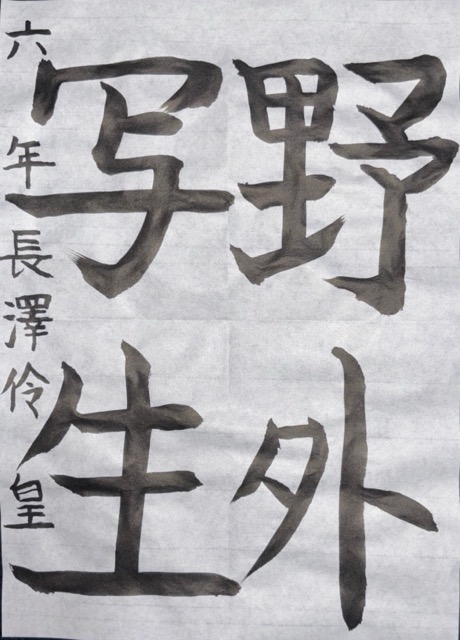 野外
写生
六年長澤伶皇